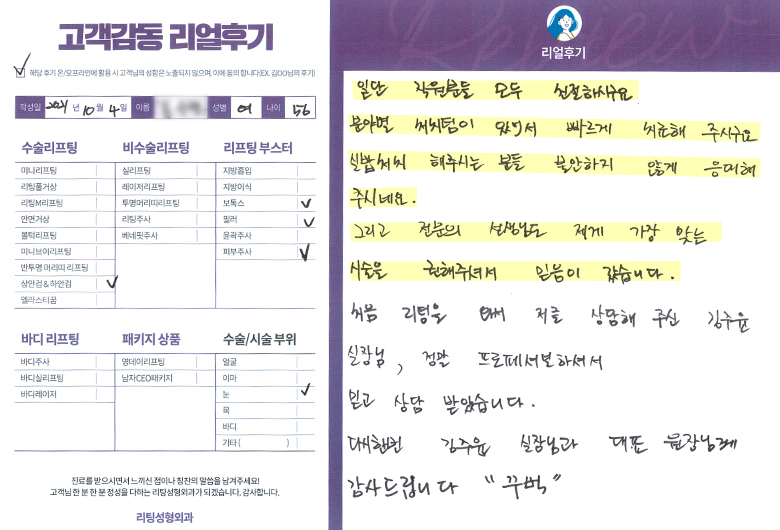 고객감동 리얼후기
해당 후기 온/오프라인에 활용 시 고객님의 성함은 노출되지 않으며, 이에 동의 합니다(EX. 김OO님의 후기)
작성일 2021 년 10 월 4 일 이름 성별 여 나이 56
수술리프팅
미니리프팅
리팅풀거상
리팅M리프팅
안면거상
볼턱리프팅
미니브이리프팅
반투명 머리띠 리프팅
상안검 & 하안검
엘라스티꿈
비수술리프팅
실리프팅
레이저리프팅
투명머리띠리프팅
리팅주사
베네핏주사
리프팅 부스터
지방흡입
지방이식
보톡스
필러
윤곽주사
피부주사
바디 리프팅
바디주사
바디실리프팅
바디레이저
패키지 상품
영데이리프팅
남자CEO패키지
수술/시술 부위
얼굴
이마
눈
목
바디
기타 ( )
진료를 받으시면서 느끼신 점이나 칭찬의 말씀을 남겨주세요!
고객님 한 분 한 분 정성을 다하는 리팅성형외과가 되겠습니다. 감사합니다.
리팅성형외과
Review
리얼후기
일단 직원분들 모두 친절하시구요
분야별 처치팀이 있어서 빠르게 치료해 주시구요
실밥처치 해주시는 분들 불안하지 않게 응대해
주시네요.
그리고 전문의 선생님도 제게 가장 맞는
시술을 권해주셔서 믿음이 갔습니다.
처음 리팅을 와서 저를 상담해 주신 김주윤
실장님, 정말 프로페셔널하셔서
믿고 상담 받았습니다.
김주윤 실장님과 대표 원장님께
감사드립니다 "꾸벅"